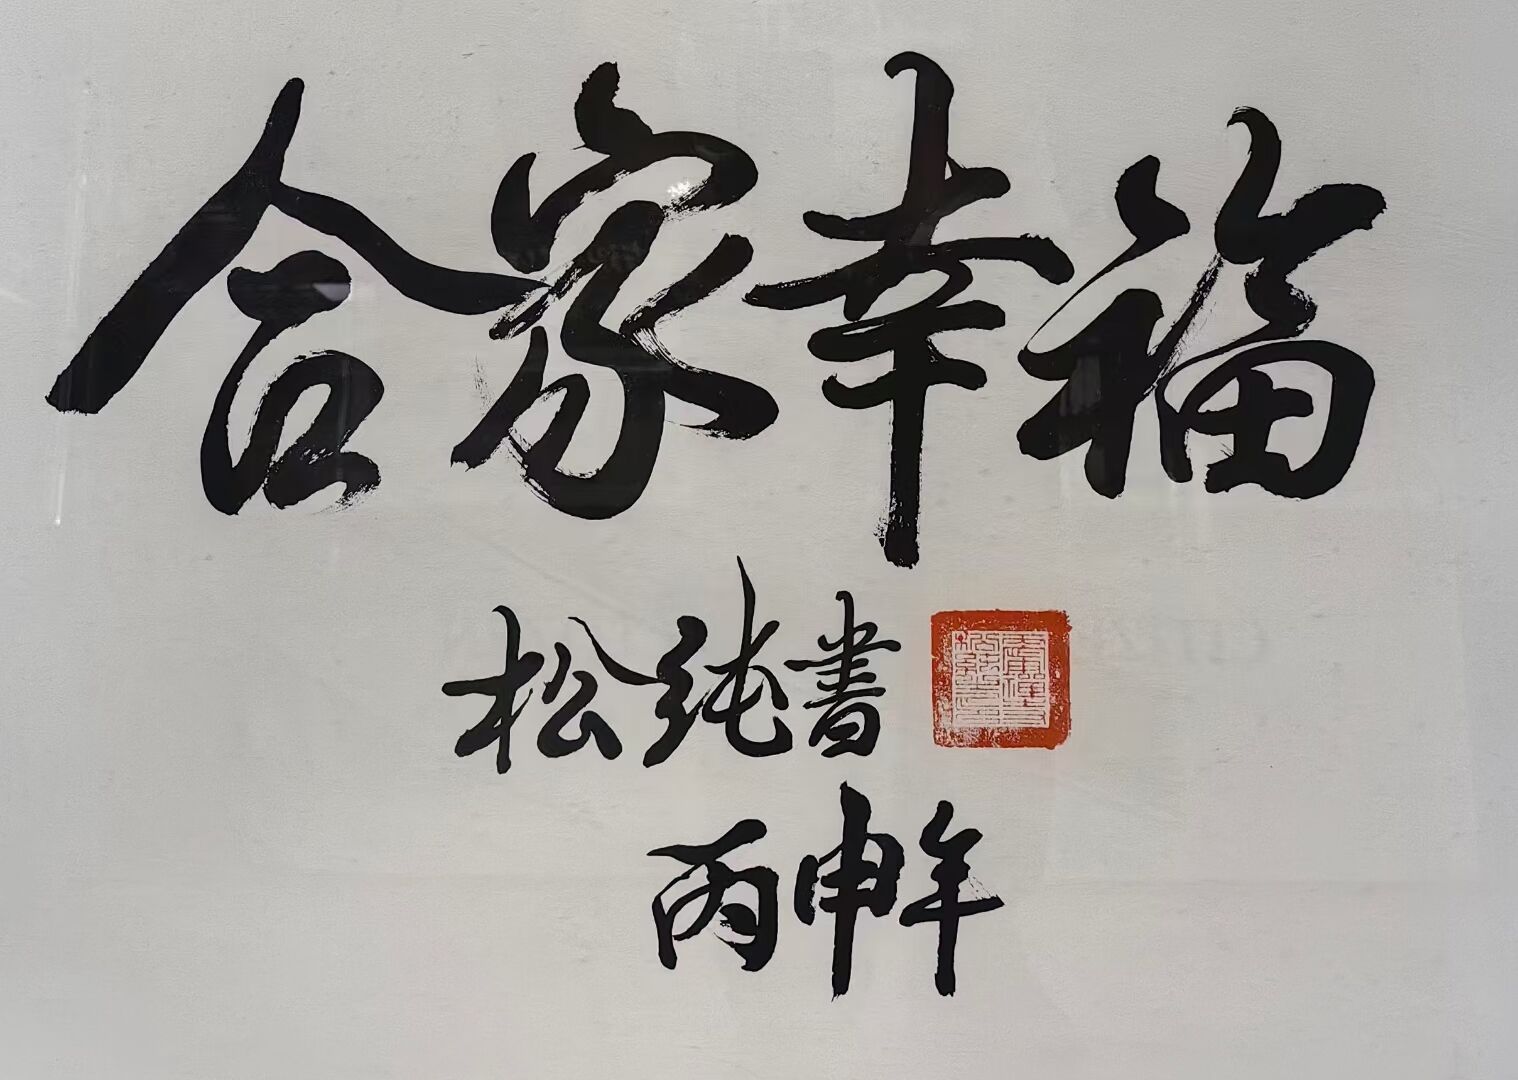 合家幸福
松纯書
丙申年